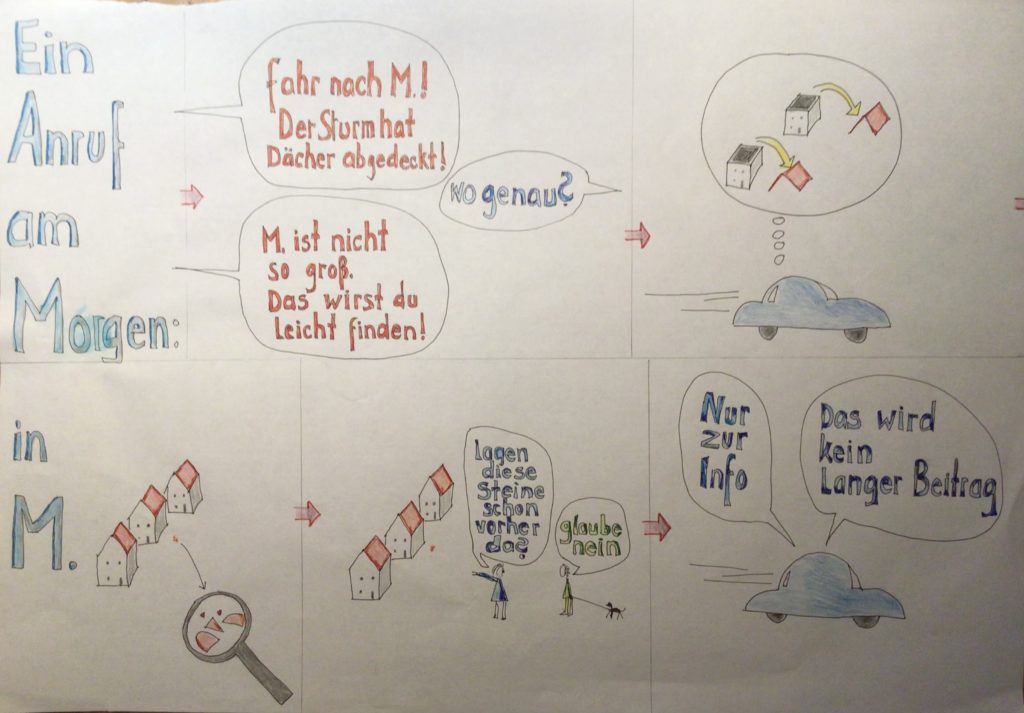 Ein
Anruf
am
Morgen:
fahr nach M.!
Der Sturm hat
Dächer abgedeckt!
wo genau?
M. ist nicht
so groß.
Das wirst du
Leicht finden!
in
M.
Lagen
diese
Steine
schon
vorher
da?
glaube
nein
Nur
zur
Info
Das wird
kein
Langer Beitrag